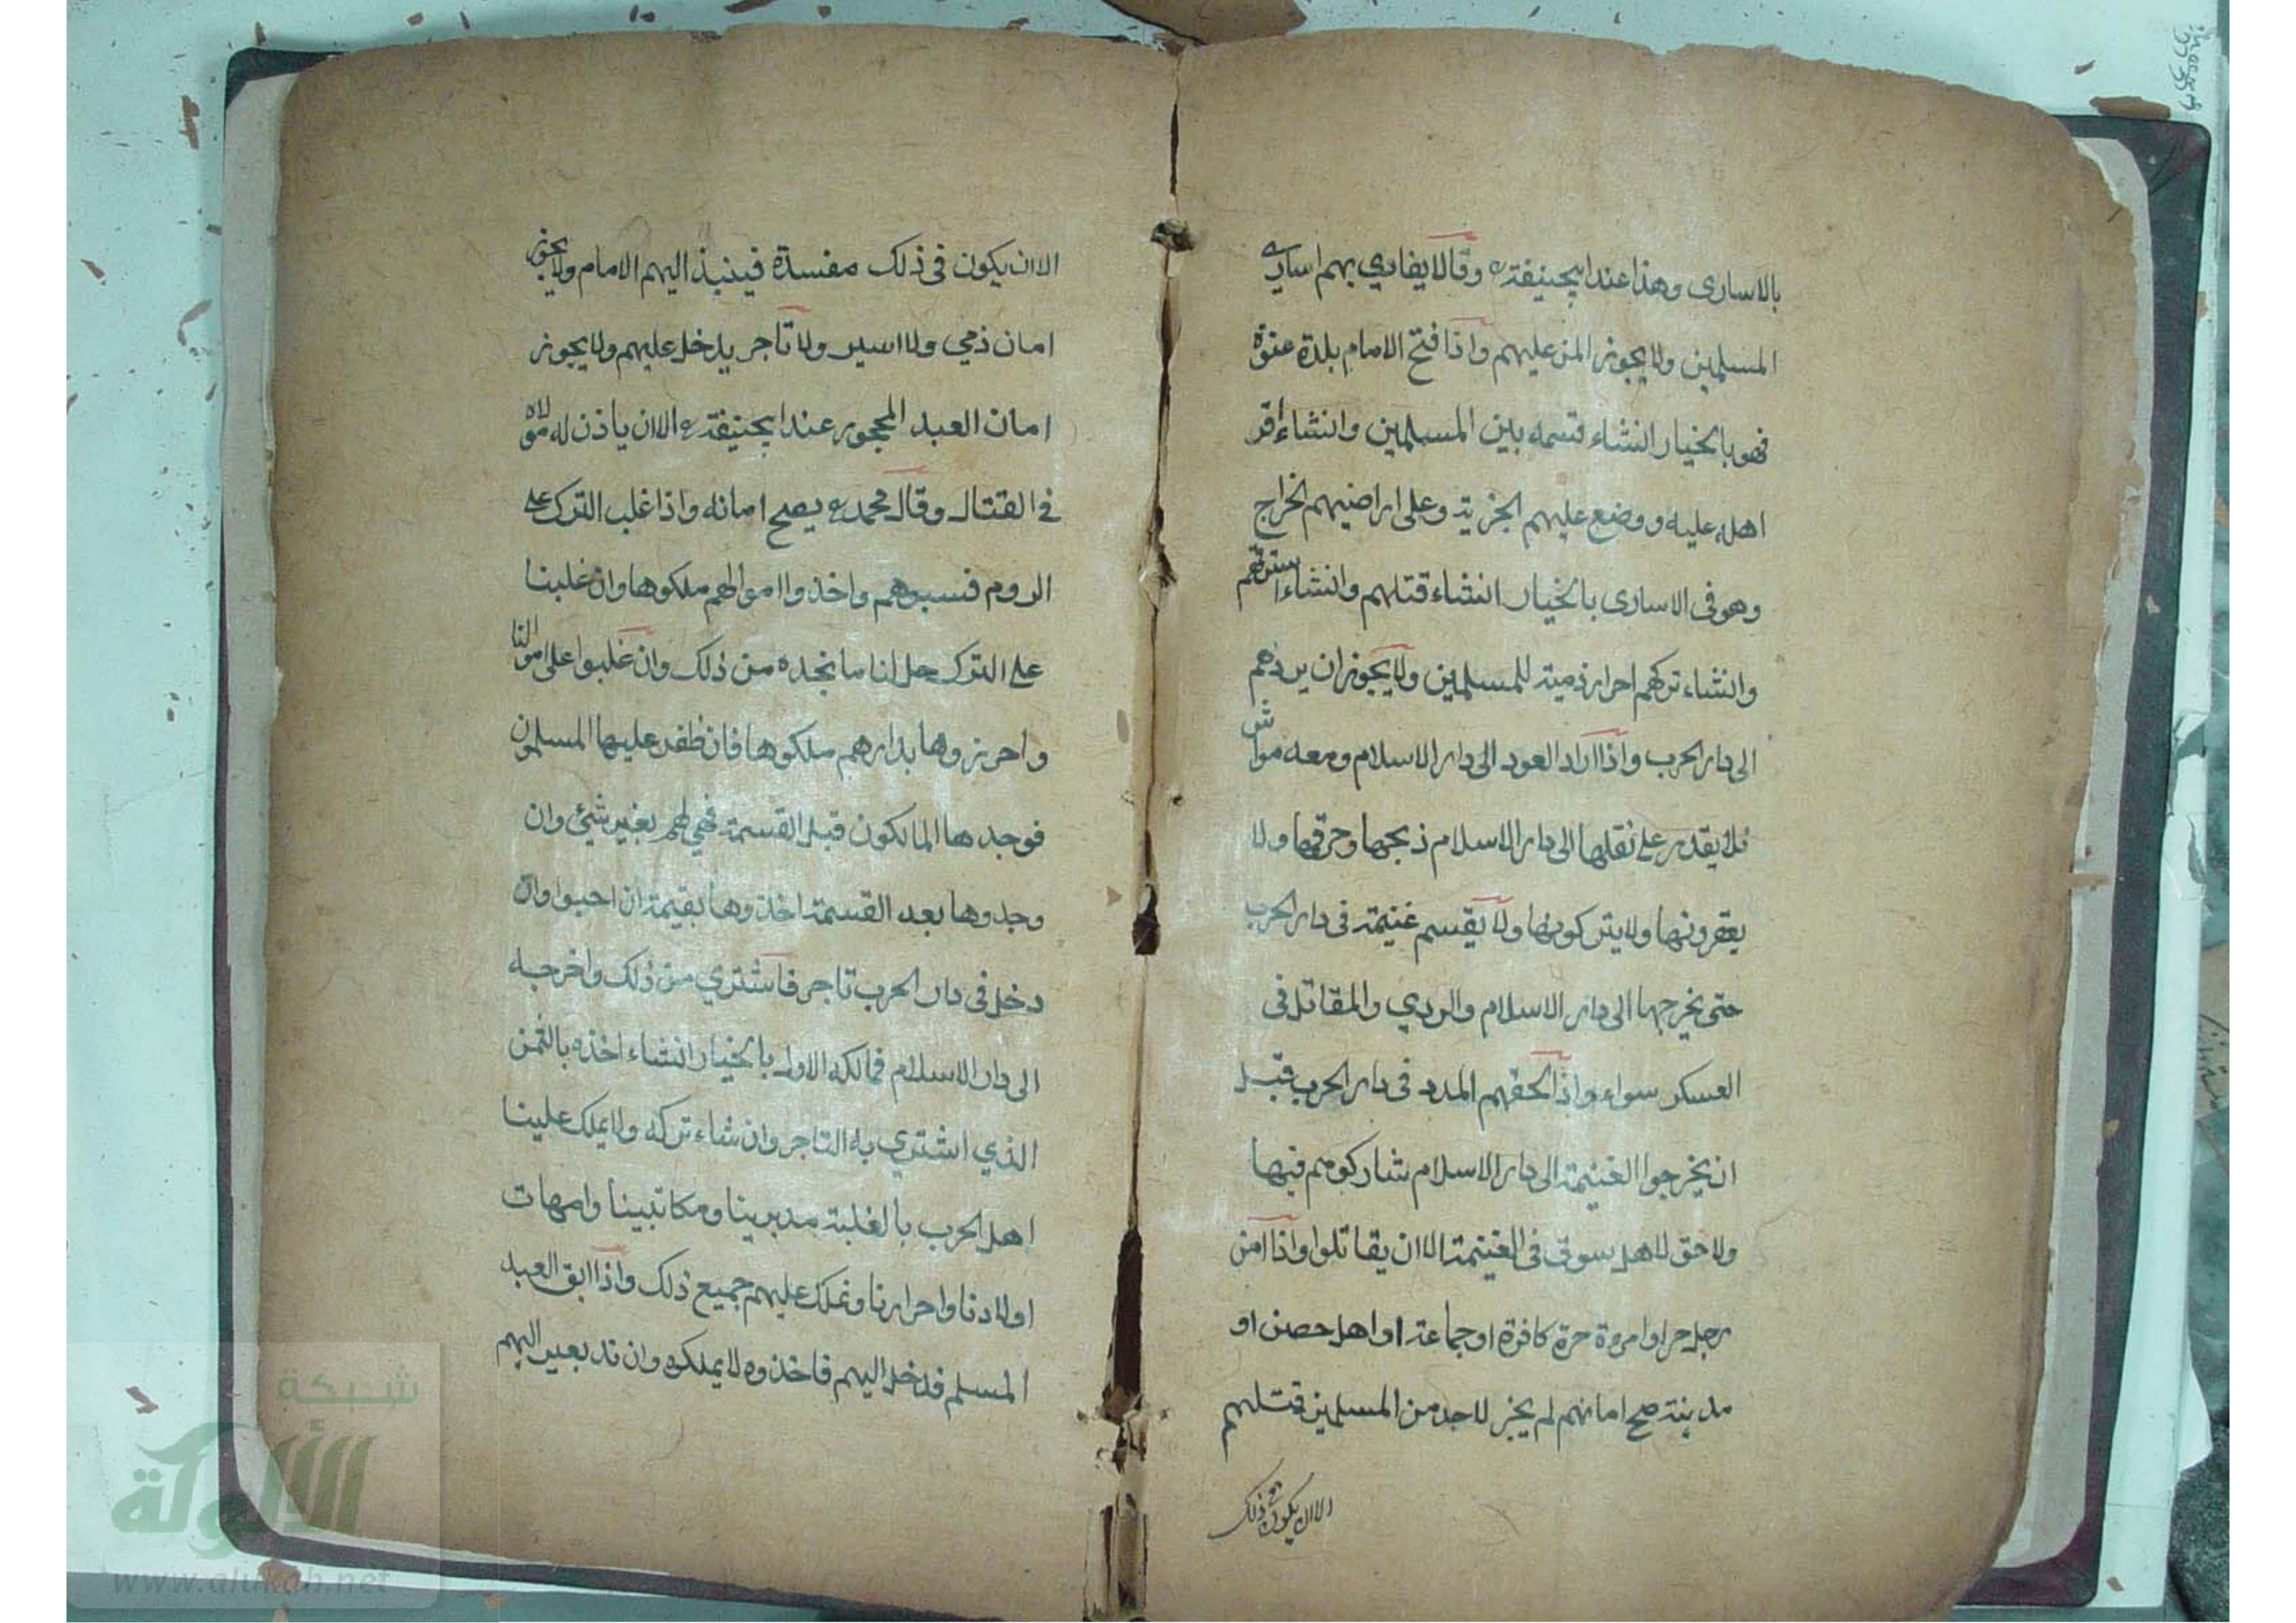 بالاسارى وهذا عند ابيحنيفة وقالا يفادي بهم اسارى
المسلمين ولا يجوز المن عليهم واذا فتح الامام بلدة عنوة
فهو بالخيار انشاء قسمه بين المسلمين وانشاء اقر
اهله عليه ووضع عليهم الجزية وعلى اراضيهم الخراج
وهو فى الاسارى بالخيار انشاء قتلهم وانشاء استرقهم
وانشاء تركهم احرار ذمية للمسلمين ولا يجوز ان يردهم
الى دار الحرب واذا اراد العود الى دار الاسلام ومعه مواش
فلا يقدر على نقلها الى دار الاسلام ذبحها وحرقها ولا
يعقرونها ولا يتركونها ولا يقسم غنيمة فى دار الحرب
حتى يخرجها الى دار الاسلام والردي والمقاتل فى
العسكر سواء واذا لحقهم المدد فى دار الحرب قبل
ان يخرجوا الغنيمة الى دار الاسلام شاركوهم فيها
ولا حق لاهل سوق فى الغنيمة الا ان يقاتلوا واذا امن
رجل حر او امروة حرة كافرة او جماعة او اهل حصن او
مدينة صح امانهم لم يجز لاحد من المسلمين قتلهم
الا ان يكون فى ذلك
الا ان يكون فى ذلك مفسدة فينبذ اليهم الامام ولا يجوز
امان ذمي ولا اسير ولا تاجر يدخل عليهم ولا يجوز
امان العبد المحجور عند ابيحنيفة الا ان ياذن له مولاه
فى القتال وقال محمد يصح امانه واذا غلب الترك على
الروم فسبوهم واخذوا اموالهم ملكوها وان غلبنا
على الترك حل لنا ما نجده من ذلك وان غلبوا على اموالنا
واحرزوها بدارهم ملكوها فان ظفر عليها المسلمون
فوجدها المالكون قبل القسمة فهي لهم بغير شئ وان
وجدوها بعد القسمة اخذوها بقيمة ان احبوا وان
دخل فى دار الحرب تاجر فاشتري من ذلك واخرجه
الى دار الاسلام فمالكه الاول بالخيار انشاء اخذه بالثمن
الذي اشتري به التاجر وان شاء تركه ولا يملك علينا
اهل الحرب بالغلبة مدبرينا ومكاتبينا وامهات
اولادنا واحرارنا ونملك عليهم جميع ذلك واذا ابق العبد
المسلم فدخل اليهم فاخذوه لا يملكوه وان ند بعير اليهم
شبكة
الألوكة
www.alukah.net